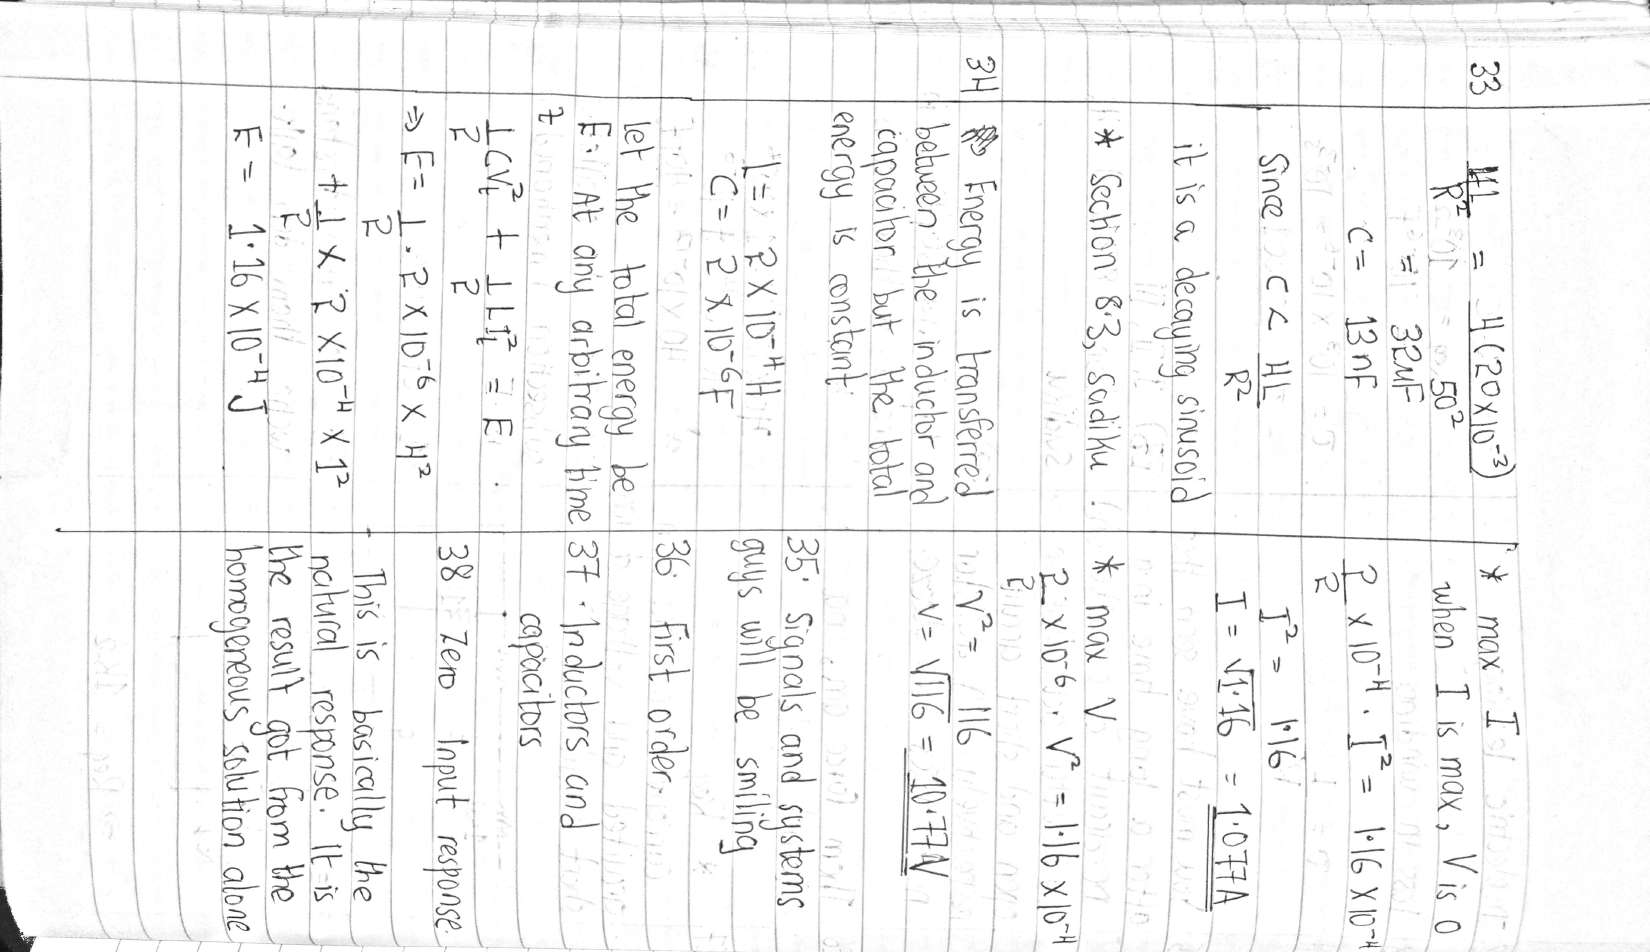 33
4L/R² = 4(20×10⁻³)/50²
= 32µF
C = 13nF
Since C < 4L/R²
it is a decaying sinusoid
* Section 8.3, Sadiku.
34 Energy is transferred
between the inductor and
capacitor but the total
energy is constant.
L = 2×10⁻⁴H
C = 2×10⁻⁶F
Let the total energy be
E. At any arbitrary time
t
1/2 CV_t² + 1/2 LI_t² = E.
⇒ E = 1/2 · 2×10⁻⁶ × 4²
+ 1/2 × 2×10⁻⁴ × 1²
E = 1.16×10⁻⁴J
* max I
when I is max, V is 0
2/2 ×10⁻⁴ · I² = 1.16×10⁻⁴
I² = 1.16
I = √1.16 = 1.077A
* max V
2/2 ×10⁻⁶ · V² = 1.16×10⁻⁴
V² = 116
V = √116 = 10.77V
35. Signals and systems
guys will be smiling
36. First order.
37. Inductors and
capacitors
38 Zero Input response.
This is basically the
natural response. It is
the result got from the
homogeneous solution alone